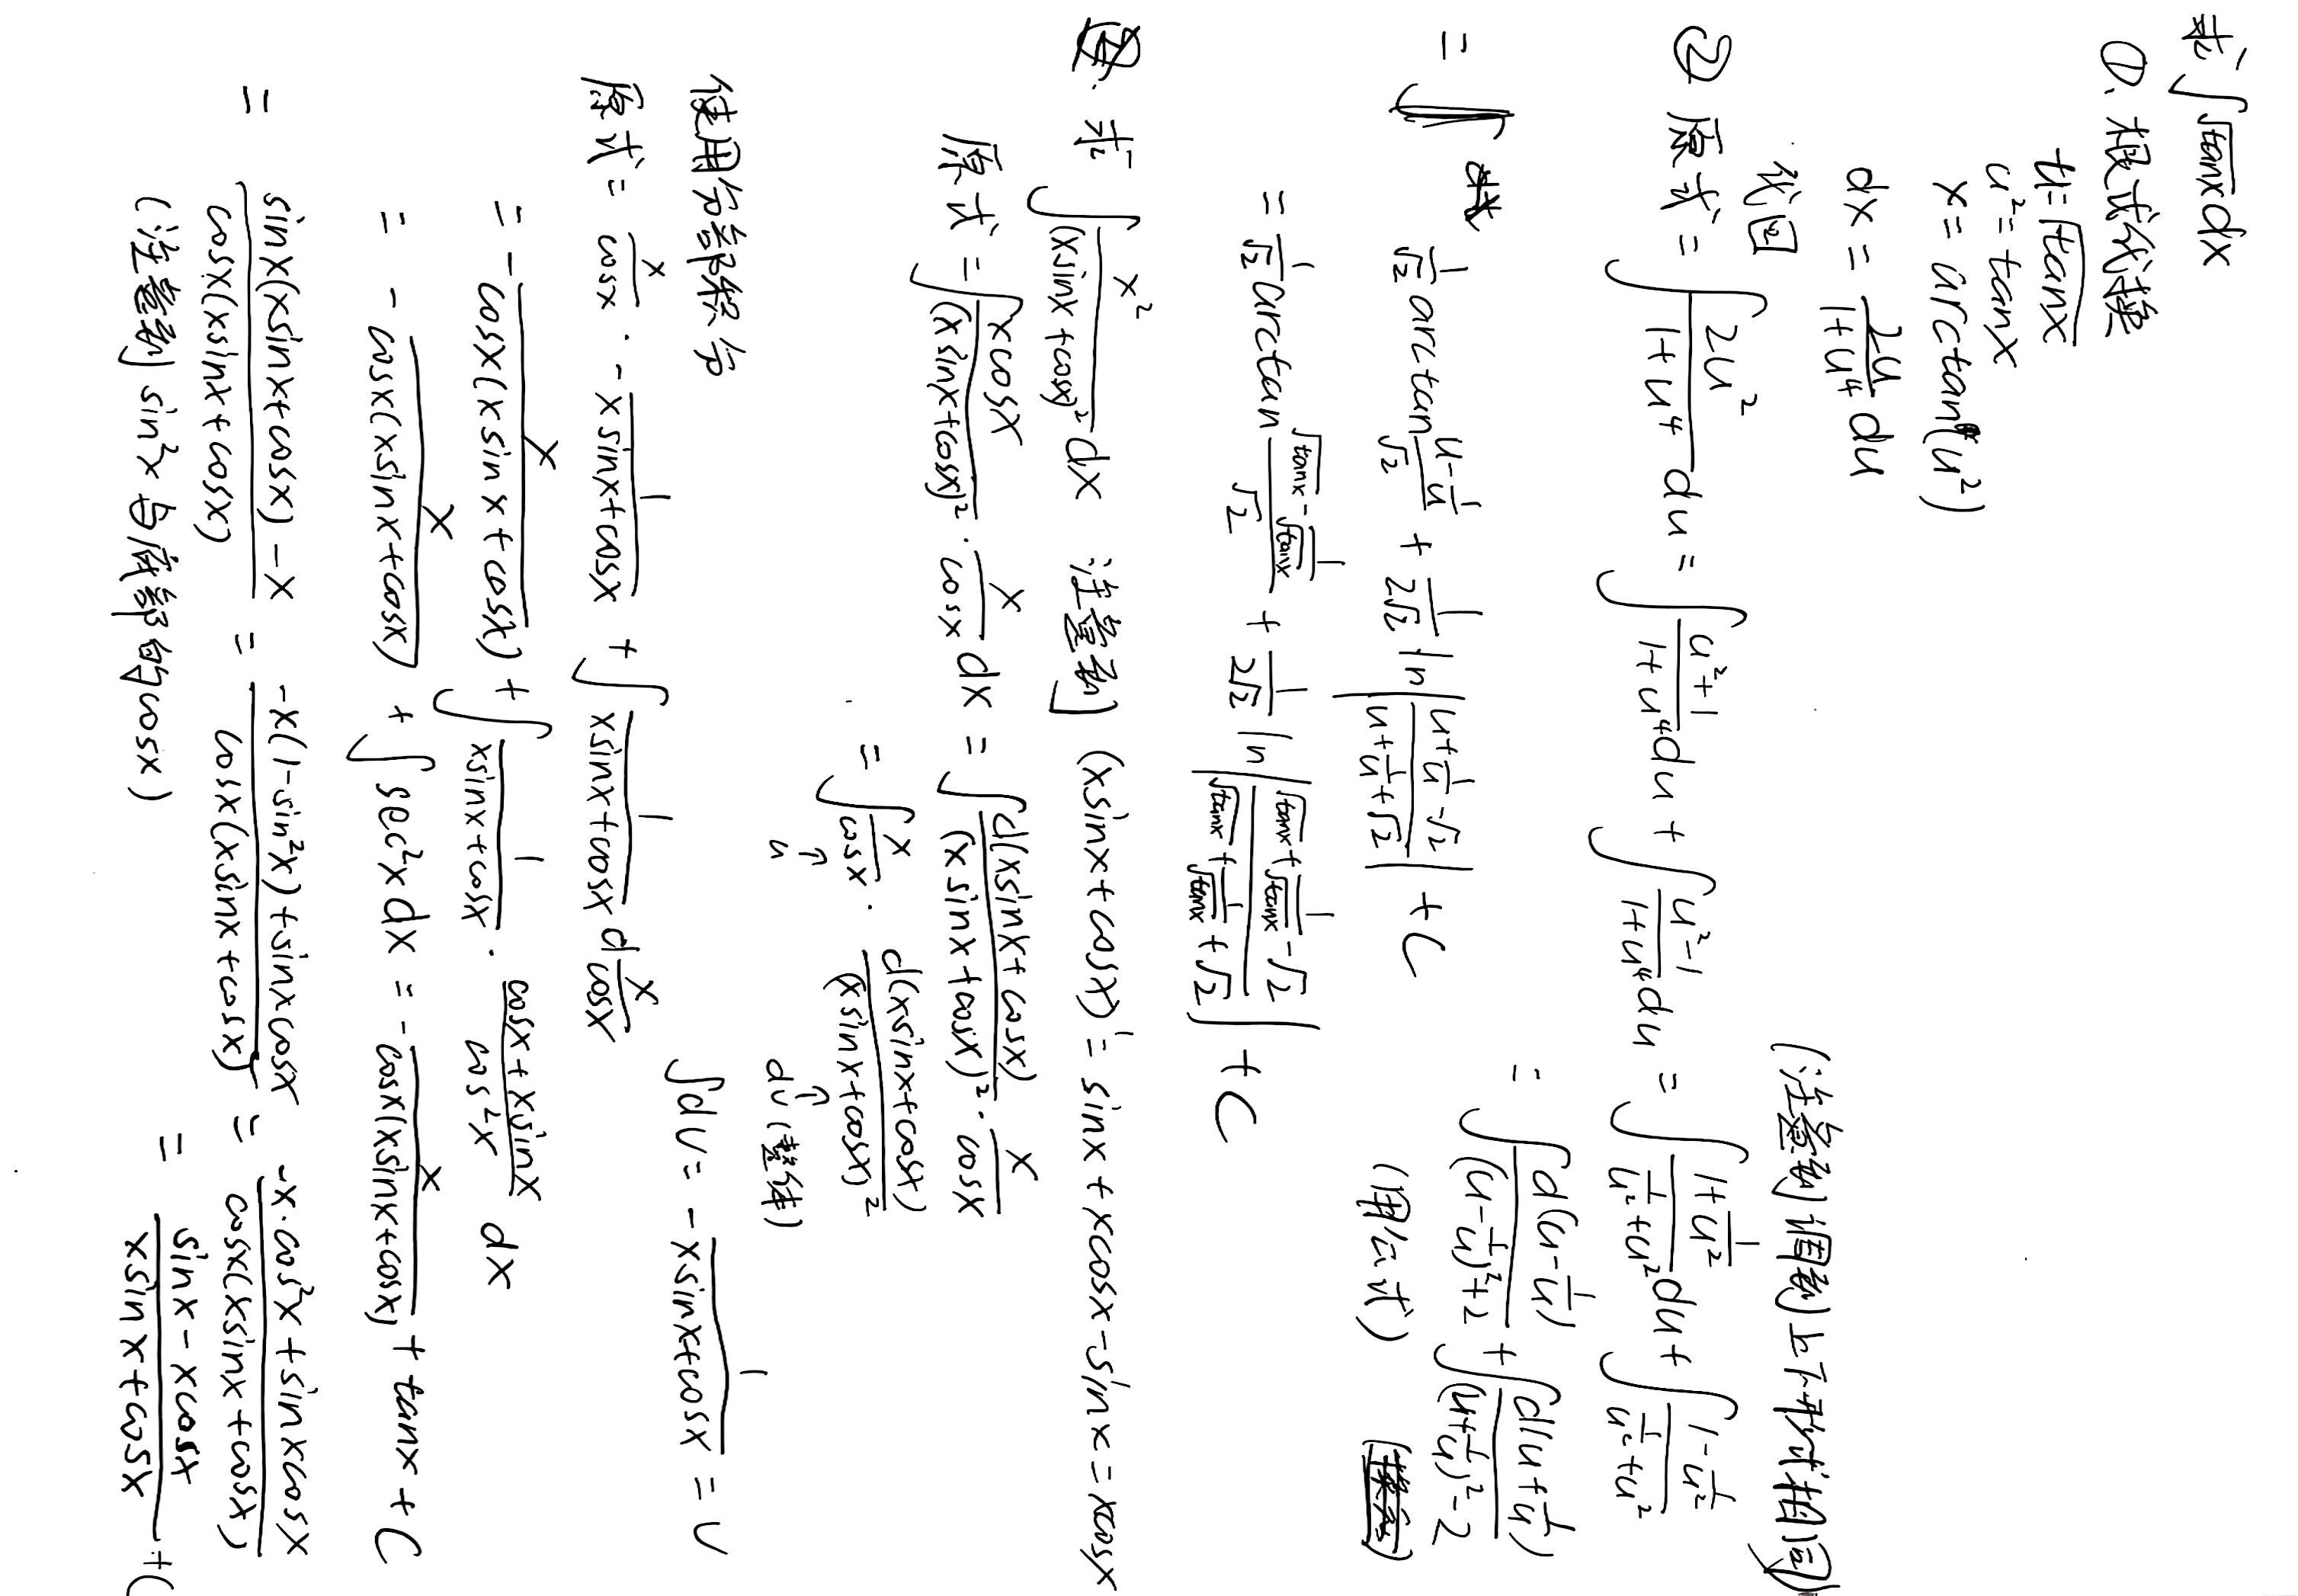 求∫√tanx dx
①.根式代换
u=√tanx
u²=tanx
x=arctan(u²)
dx = 2u/(1+u⁴) du
代回 (注意到调整上下形式相同)
② 原式=∫2u²/(1+u⁴) du = ∫(u²+1)/(1+u⁴) du + ∫(u²-1)/(1+u⁴) du = ∫(1+1/u²)/(1/u²+u²) du + ∫(1-1/u²)/(1/u²+u²)
= ∫d(u-1/u)/((u-1/u)²+2) + ∫d(u+1/u)/((u+1/u)²-2)
(用公式)
= 1/√2 arctan (u-1/u)/√2 + 1/(2√2) ln|(u+1/u-√2)/(u+1/u+√2)| + C
= 1/√2 arctan (√tanx-1/√tanx)/√2 + 1/(2√2) ln|(√tanx+1/√tanx-√2)/(√tanx+1/√tanx+√2)| + C
求 ∫x²/(xsinx+cosx)² dx 注意到 (xsinx+cosx)'=sinx+xcosx-sinx=xcosx
原式=∫xcosx/(xsinx+cosx)² · x/cosx dx = ∫d(xsinx+cosx)/(xsinx+cosx)² · x/cosx
= ∫x/cosx · d(xsinx+cosx)/(xsinx+cosx)²
⇑ ⇑
u dv (整体)
使用分部积分 ∫dv=-1/(xsinx+cosx)=v
原式= x/cosx · -1/(xsinx+cosx) + ∫1/(xsinx+cosx) d x/cosx
= - x/(cosx(xsinx+cosx)) + ∫1/(xsinx+cosx) · (cosx+xsinx)/cos²x dx
= - x/(cosx(xsinx+cosx)) + ∫sec²xdx = - x/(cosx(xsinx+cosx)) + tanx + C
= (sinx(xsinx+cosx)-x)/(cosx(xsinx+cosx)) = (-x(1-sin²x)+sinxcosx)/(cosx(xsinx+cosx)) = (-x·cos²x+sinxcosx)/(cosx(xsinx+cosx))
(注意到 sin²x与底部的cosx) = (sinx-xcosx)/(xsinx+cosx) +C